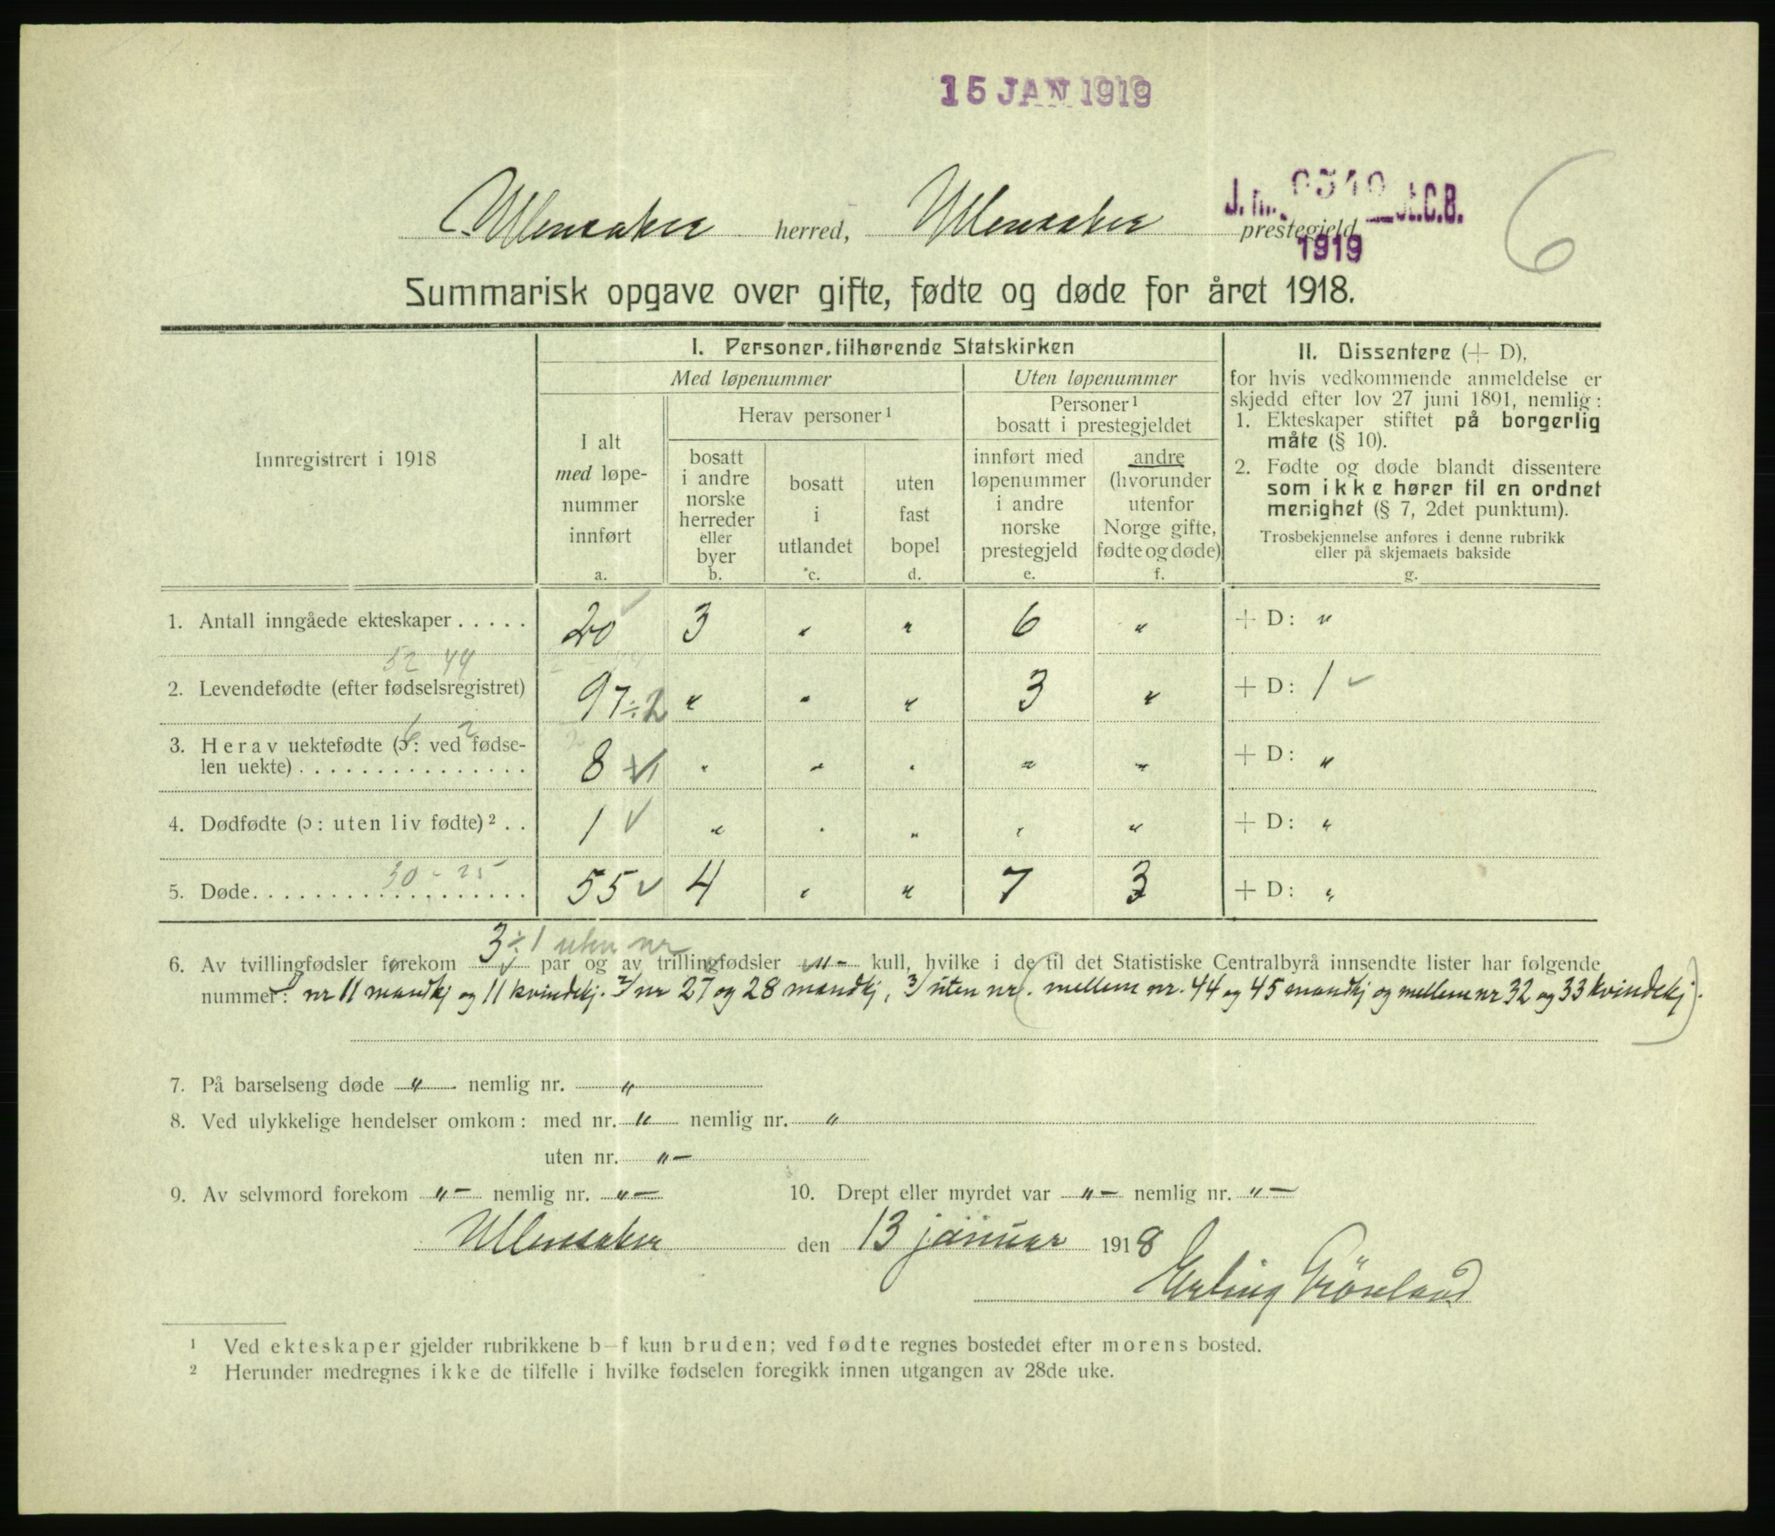 15 JAN 1919
Ullensaker herred, Ullensaker prestegjeld
J. nr. St.C.B.
1919
6
Summarisk opgave over gifte, fødte og døde for året 1918.
Innregistrert i 1918
I. Personer tilhørende Statskirken
Med løpenummer
Uten løpenummer
I alt
med løpe-
nummer
innført
a.
Herav personer ¹
bosatt
i andre
norske
herreder
eller
byer
b.
bosatt
i
utlandet
c.
uten
fast
bopel
d.
Personer ¹
bosatt i prestegjeldet
innført med
løpenummer
i andre
norske
prestegjeld
e.
andre
(hvorunder
utenfor
Norge gifte,
fødte og døde)
f.
II. Dissentere (+ D),
for hvis vedkommende anmeldelse er
skjedd efter lov 27 juni 1891, nemlig:
1. Ekteskaper stiftet på borgerlig
måte (§ 10).
2. Fødte og døde blandt dissentere
som ikke hører til en ordnet
menighet (§ 7, 2det punktum).
Trosbekjennelse anføres i denne rubrikk
eller på skjemaets bakside
g.
1. Antall inngåede ekteskaper . . . . . 20 ✓ 3 " " 6 " + D: "
52 44
2. Levendefødte (efter fødselsregistret) 97 ÷ 2 " " " 3 " + D: 1 ✓
6 2
3. Herav uektefødte (ɔ: ved fødse-
len uekte) . . . . . . . . . . . . . . . 8 ✓ " " " " " + D: "
4. Dødfødte (ɔ: uten liv fødte) ² . . 1 ✓ " " " " " + D: "
30 - 25
5. Døde. . . . . . . . . . . . . . . . . . 55 ✓ 4 " " 7 3 + D: "
3 ÷ 1 uten nr
6. Av tvillingfødsler forekom par og av trillingfødsler -"- kull, hvilke i de til det Statistiske Centralbyrå innsendte lister har følgende
nummer: nr 11 mandkj og 11 kvindekj. 2/ nr 27 og 28 mandkj, 3/ uten nr. (mellem nr. 44 og 45 mandkj og mellem nr 32 og 33 kvindekj).
7. På barselseng døde " nemlig nr. "
8. Ved ulykkelige hendelser omkom: med nr. " nemlig nr. "
uten nr. "-
9. Av selvmord forekom "- nemlig nr. "-
10. Drept eller myrdet var "- nemlig nr. "-
Ullensaker den 13 januar 1918
Erling Grönland
¹ Ved ekteskaper gjelder rubrikkene b—f kun bruden; ved fødte regnes bostedet efter morens bosted.
² Herunder medregnes ikke de tilfelle i hvilke fødselen foregikk innen utgangen av 28de uke.